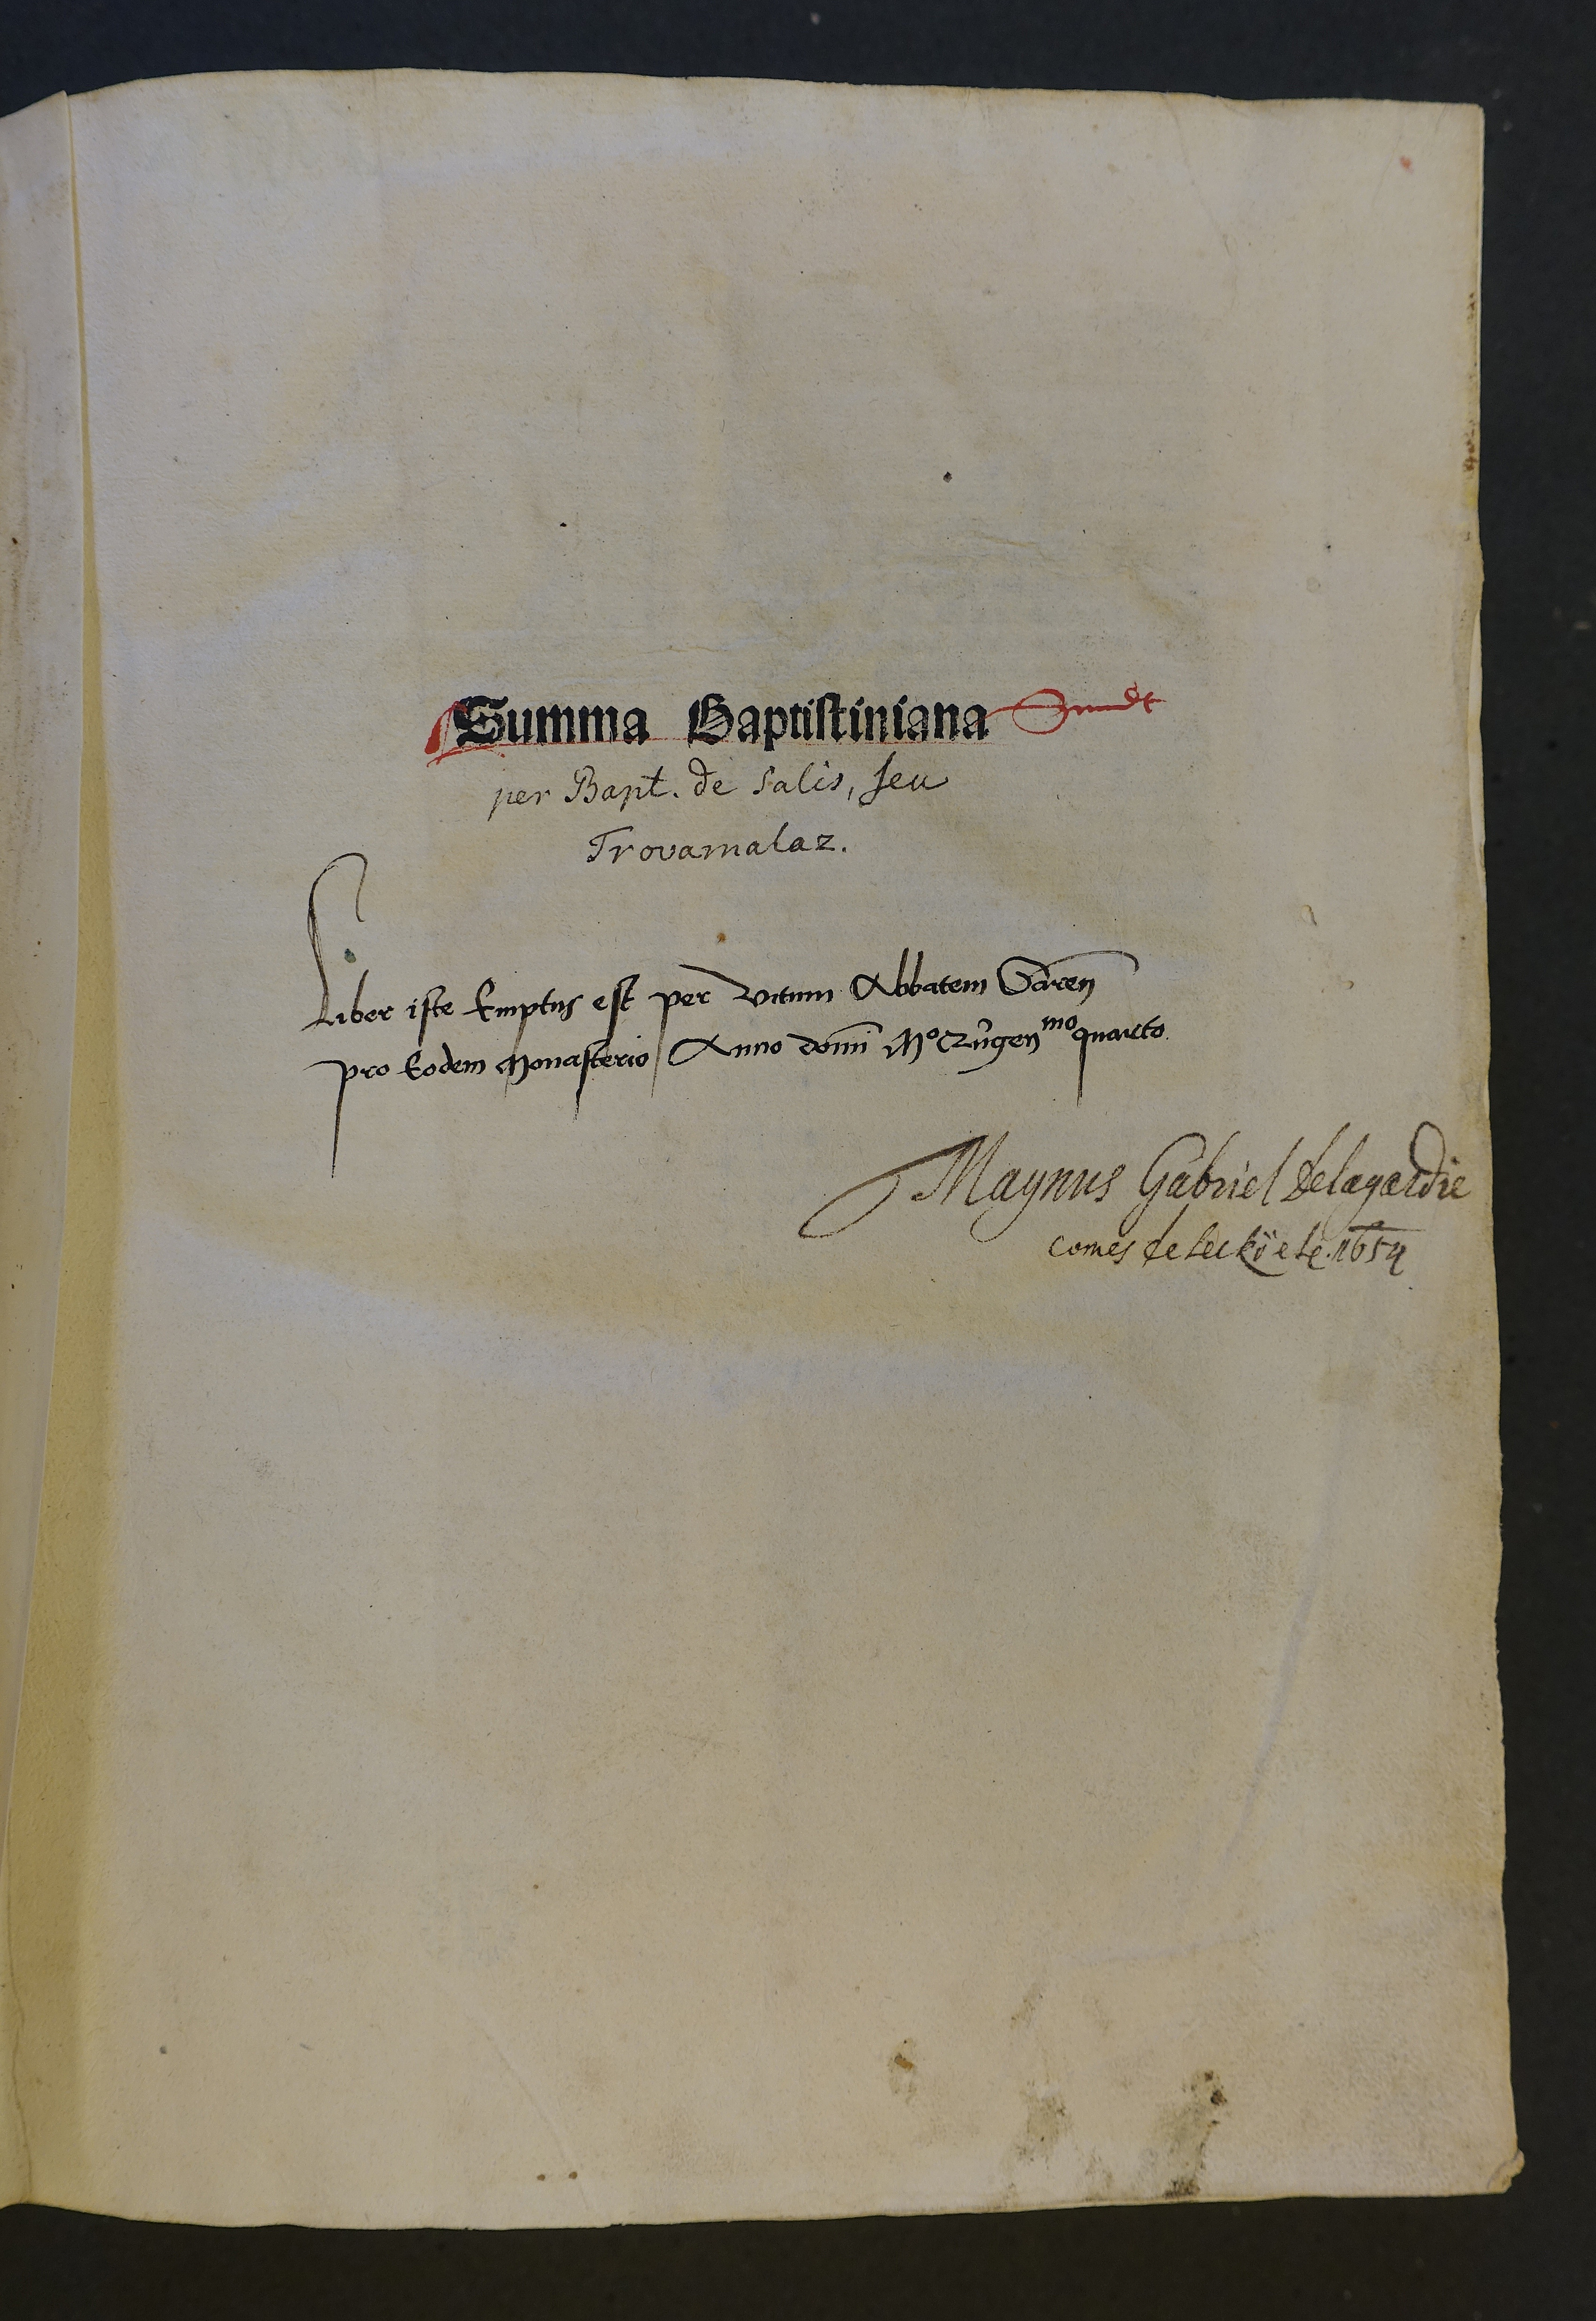 Summa Baptistiniana
per Bapt. de Salis, seu
Trovamalaz.
Liber iste Emptus est per vitum Abbatem
pro Eodem Monasterio Anno domi Mo quarto
Magnus Gabriel Delagardie
comes de Leckö etc. 1654